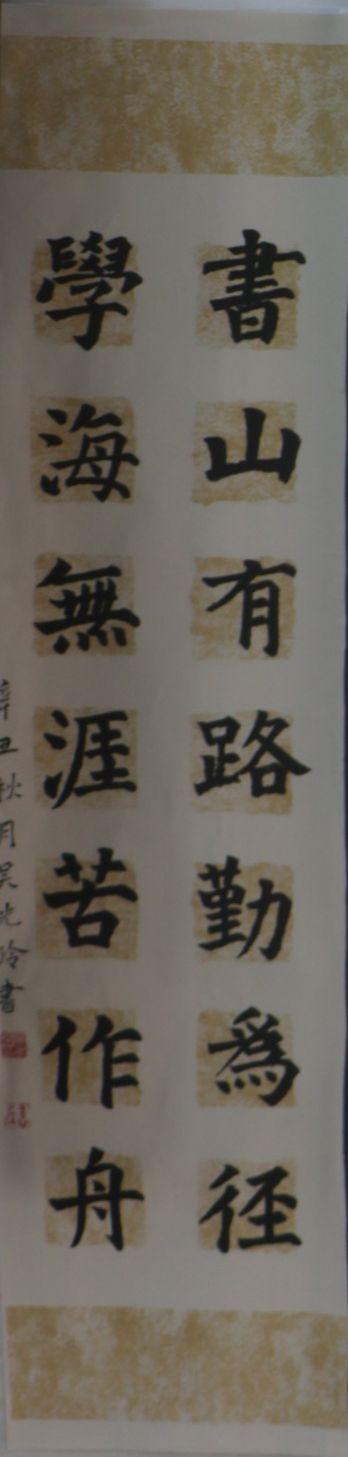 書山有路勤為徑
學海無涯苦作舟
辛丑秋月吴 玲書